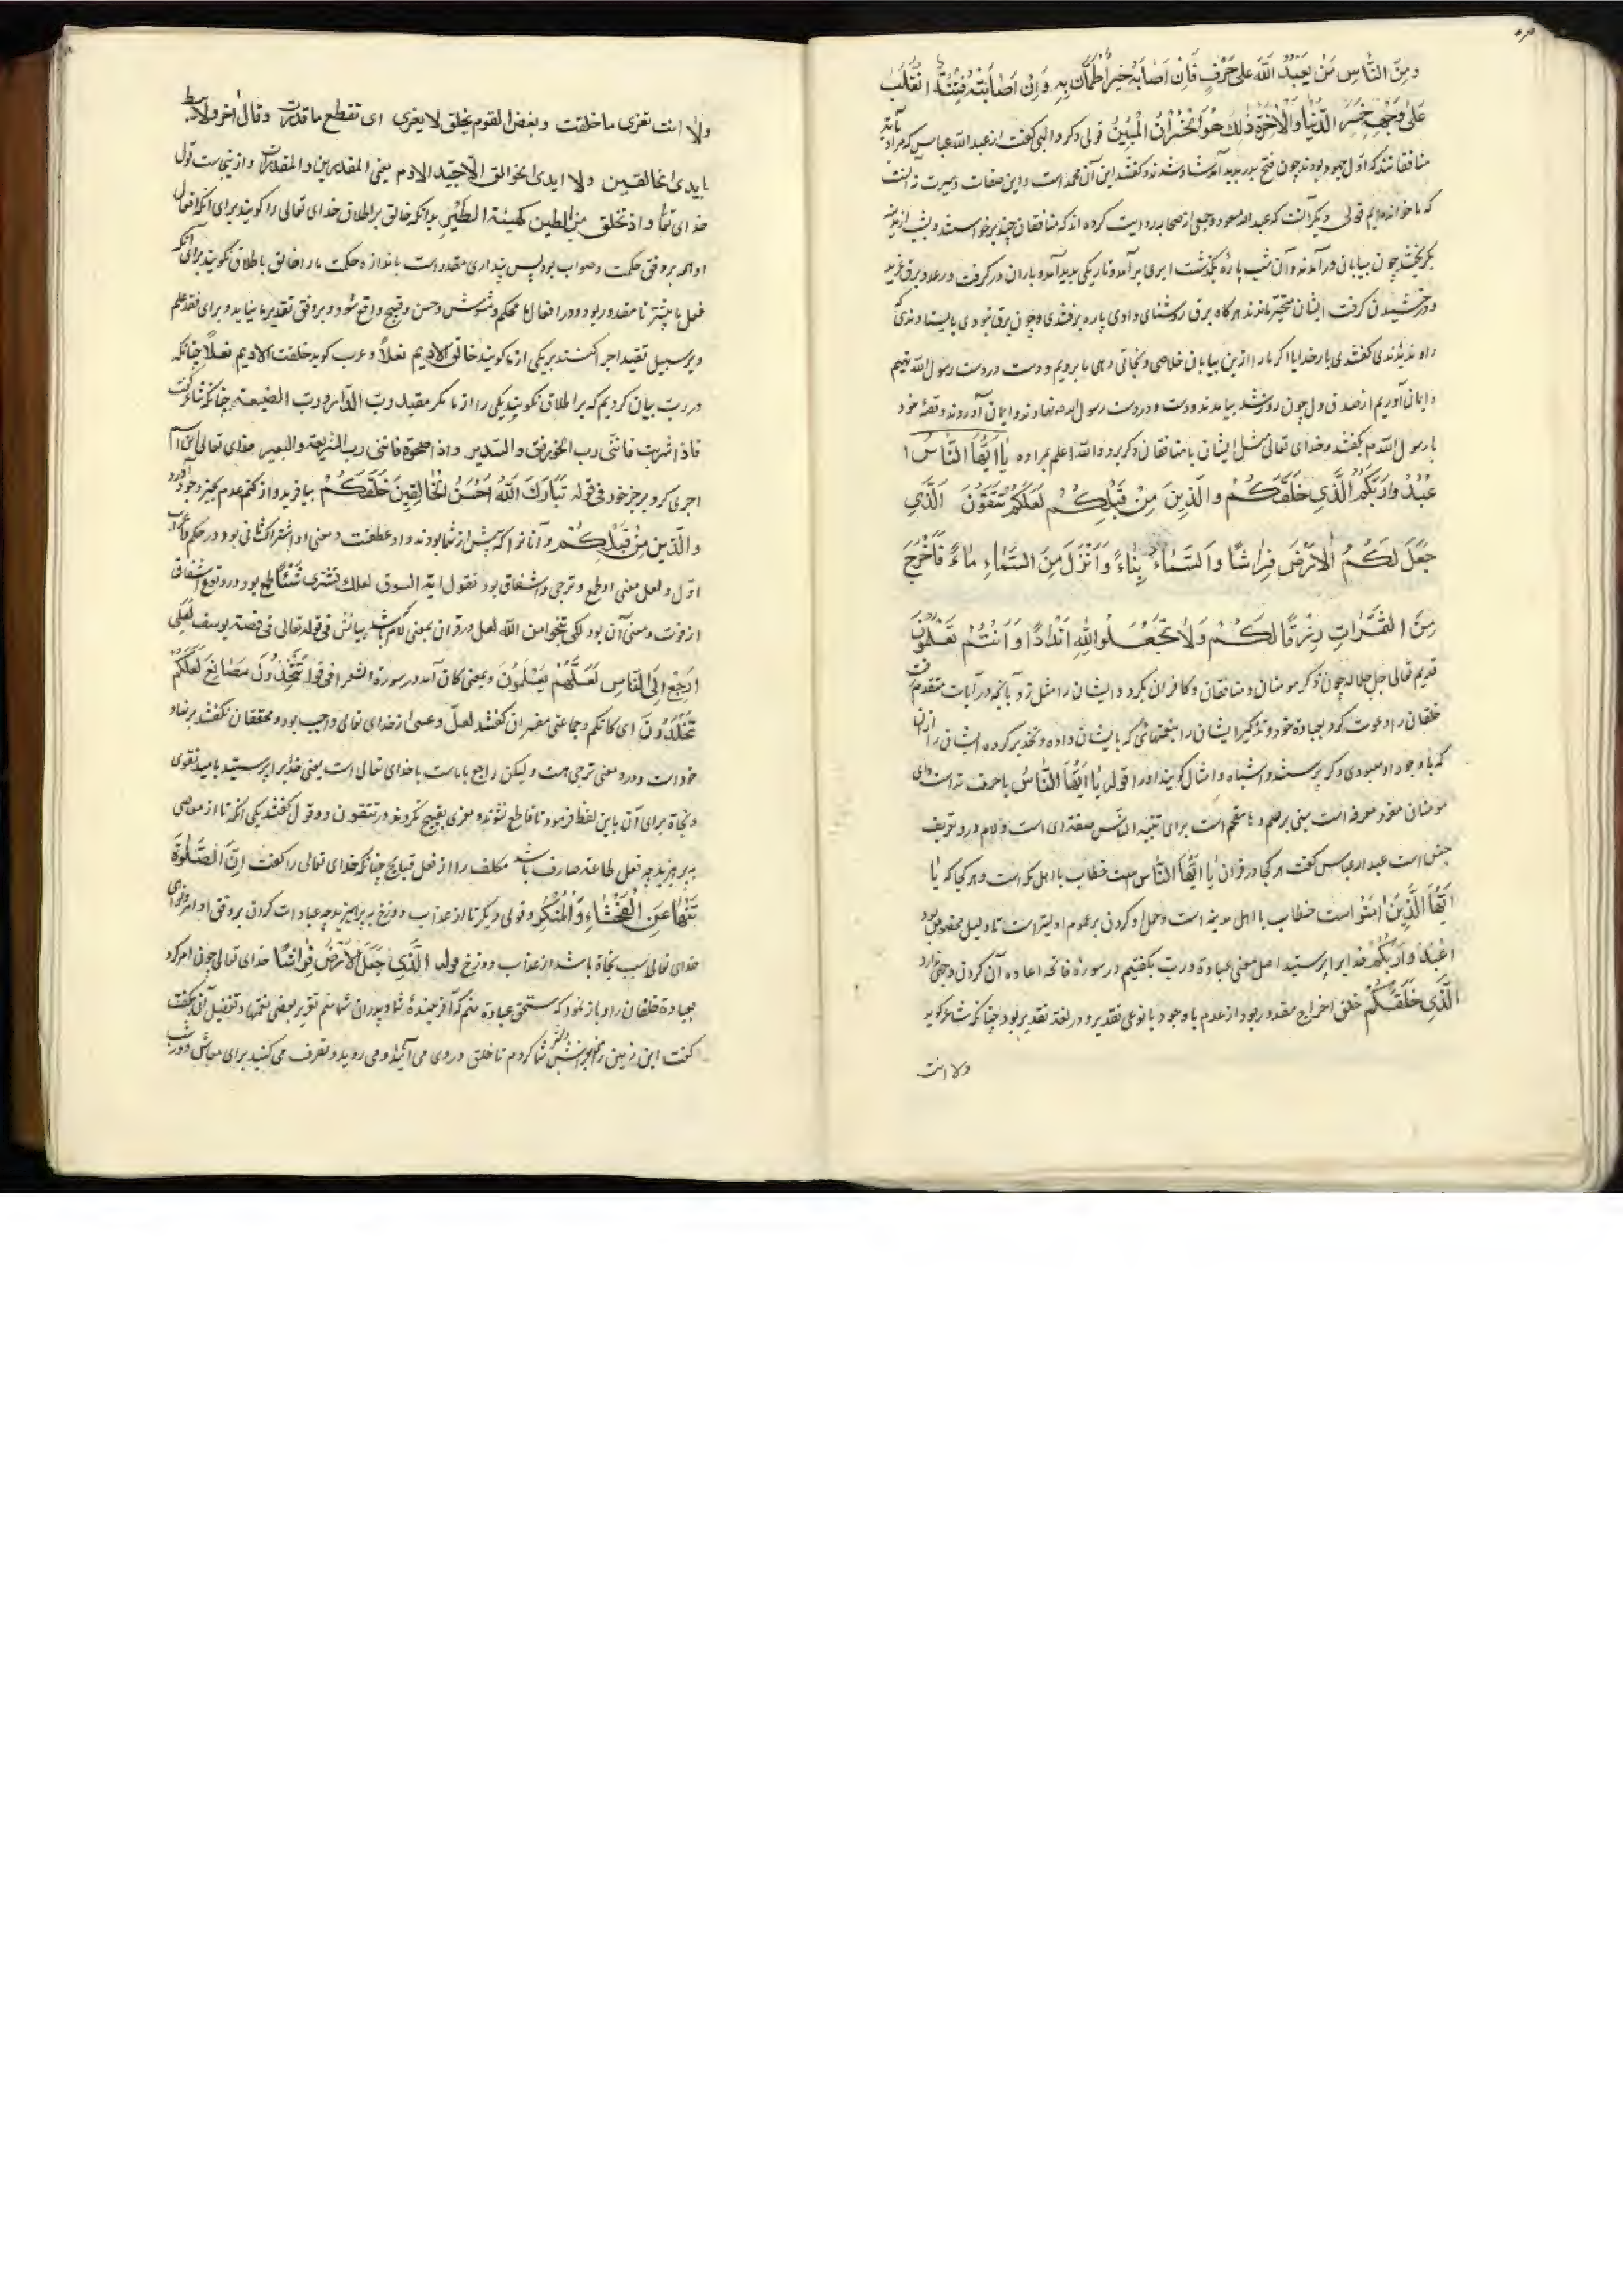 ومِنَ النَّاسِ مَنْ يَعْبُدُ اللّهَ عَلى حَرْفٍ فَاِنْ اَصٰابَهُ خَيْرٌ اطْمَأَنَّ بِهِ وَاِنْ اَصٰابَتْهُ فِتْنَةٌ انْقَلَبَ
عَلىٰ وَجْهِهِ خَسِرَ الدُّنْيٰا وَالْاٰخِرَةَ ذٰلِكَ هُوَ الْخُسْرٰانُ الْمُبِينُ قولی دکر والبی کفت از عبد الله عباس که مراد بآیة
منافقانند که اول جهود بودند چون فتح بدر پدید آمد شاد شدند و کفتند این آن محمد است و این صفات و سیرت آنست
که ما خوانده‌ایم قولی دیکر آنست که عبد الله مسعود و جمعی از صحابه روایت کرده اند که منافقان چند برخواستند و بشب از مدینه
بکریختند چون ببیابان در آمدند و آن شب پارۀ بکذشت ابری برآمد و تاریکی پدید آمد و باران در کرفت و رعد و برق غرید
و درخشیدن کرفت ایشان متحیر ماندند هر کاه برق روشنای دادی پاره برفتندی و چون برق نبودی بایستادندی که
راه ندیدندی کفتندی بار خدایا اکر ما را ازین بیابان خلاصی و نجاتی دهی ما برویم و دست در دست رسول الله نهیم
و ایمان آوریم از صدق دل چون روز شد بیامدند و دست در دست رسول الله نهادند و ایمان آوردند و قصۀ خود
با رسول الله بکفتند و خدای تعالی مثل ایشان با منافقان دکر برد والله اعلم بمراده يٰا اَيُّهَا النّٰاسُ ا
عْبُدُوا رَبَّكُمُ الَّذِي خَلَقَكُمْ وَالَّذِينَ مِنْ قَبْلِكُمْ لَعَلَّكُمْ تَتَّقُونَ الَّذِي
جَعَلَ لَكُمُ الْاَرْضَ فِرٰاشًا وَالسَّمٰاءَ بِنٰاءً وَاَنْزَلَ مِنَ السَّمٰاءِ مٰاءً فَاَخْرَجَ
مِنَ الثَّمَرٰاتِ رِزْقًا لَكُمْ وَلٰا تَجْعَلُوا لِلّٰهِ اَنْدٰادًا وَاَنْتُمْ تَعْلَمُونَ
قدیم تعالی جل جلاله چون ذکر مومنان و منافقان و کافران بکرد و ایشان را مثل زد بآنچه در آیات متقدم رفت
خلقان را دعوت کرد بعبادة خود و تذکیر ایشان را بنعمتهائی که بایشان داده و تحذیر کرده ایشان را از آن
که با وجود او معبودی دکر پرستند و اشباه و امثال کویند او را قوله يٰا اَيُّهَا النّٰاسُ یا حرف نداست و ای
منادی مفرد معرفه است مبنی بر ضم و ها مقحم است برای تنبیه الناس صفت ای است و لام درو تعریف
جنس است عبد الله عباس کفت هر کجا در قران يٰا اَيُّهَا النّٰاس است خطاب با اهل مکه است و هر کجا که يٰا
اَيُّهَا الَّذِينَ اٰمَنُوا است خطاب با اهل مدینه است و حمل او کردن بر عموم اولیتر است تا دلیل مخصوص بود
اعْبُدُوا رَبَّكُمْ خدایرا پرستید اصل معنی عبادة و رب بکفتیم در سورۀ فاتحه اعاده آن کردن وجهی ندارد
الَّذِي خَلَقَكُمْ خلق اخراج مقدور بود از عدم با وجود با نوعی تقدیر و در لغة تقدیر بود چنانکه شاعر کوید
ولا انت
ولأ انت تفری ما خلقت وبعض القوم یخلق لا یفری ای تقطع ما قدرت وقال اخر ولا یسط
بایدی الخالقین ولا ایدی الخوالق الاجید الادم یعنی المقدرین والمقدرات و ازینجاست قول
خدای تعا واذ تخلق من الطین کهیئة الطیر بدانکه خالق بر اطلاق خدای تعالی را کویند برای آنکه افعال
او همه بر وفق حکمت و صواب بود پس پنداری مقدر است باندازه حکمت ما را خالق باطلاق نکویند برای آنکه
فعل ما بیشتر نامقدور بود و در افعال ما محکم و مشوش و حسن و قبیح واقع شود و بر وفق تقدیر ما نیاید و برای فقد علم
و بر سبیل تقیید اجرا کنند بر یکی از ما کویند خالق الادیم نعلاً و عرب کوید خلقت الادیم نعلاً چنانکه
در رب بیان کردیم که بر اطلاق نکویند یکی را از ما مکر مقید رب الدار و رب الضیعة چنانکه شاعر کفت
فاذا شربت فاننی رب الخورنق والسدیر واذا صحوت فاننی رب الشویهة والبعیر خدای تعالی این اسم
اجری کرد بر جز خود فی قوله تَبٰارَكَ اللّٰهُ اَحْسَنُ الْخٰالِقِينَ خَلَقَكُمْ بیافرید و از کتم عدم بحیز وجود آورد
وَالَّذِينَ مِنْ قَبْلِكُمْ و آنانرا که پیش از شما بودند واو عطفست و معنی او اشتراک ثانی بود در حکم و اعراب
اول و لعل معنی او طمع و ترجی و اشفاق بود تقول ایت السوق لعلك تشتری شَيْئًا طمع بود در و توقع و اشفاق
از فوت و معنی آن بود لکی تنجوا من الله لعل در قران بمعنی لام کی باشد بیانش فی قوله تعالی فی قصة یوسف لَعَلِّي
اَرْجِعُ اِلَى النّٰاسِ لَعَلَّهُمْ يَعْلَمُونَ و بمعنی کان آمد در سورة الشعراء فی قوله تَتَّخِذُونَ مَصٰانِعَ لَعَلَّكُمْ
تَخْلُدُونَ ای کانکم و جماعتی مفسران کفتند لعلّ و عسی از خدای تعالی واجب بود و محققان نکفتند بر نهاد
خود است و درو معنی ترجی هست ولیکن راجع با ماست با خدای تعالی است یعنی خدایرا پرستید بامید تقوی
و نجاة برای آن باین لفظ فرمود تا قاطع نشوند و مغری بقبیح نکردند و در تتقون دو قول کفتند یکی آنکه تا از معاصی
بپرهیزید چه فعل طاعة صارف باشد مکلف را از فعل قبایح چنانکه خدای تعالی را کفت اِنَّ الصَّلٰوةَ
تَنْهٰى عَنِ الْفَحْشٰاءِ وَالْمُنْكَرِ و قولی دیکر تا از عذاب دوزخ بپرهیزید چه عبادات کردن بر وفق اوامر و نواهی
خدای تعالی سبب نجاة باشد از عذاب دوزخ قوله الَّذِي جَعَلَ لَكُمُ الْاَرْضَ فِرٰاشًا خدای تعالی چون امر کرد
بعبادة خلقان را و باز نمود که مستحق عبادة منم که آفرینندۀ شما و پدران شما منم تقریر بعضی نعمتها و تفضیل آن بکفت
کفت این زمین را من فراش شما کردم تا خلق در وی می‌آیند و می‌روید و تصرف می‌کنید برای معاش و در شب